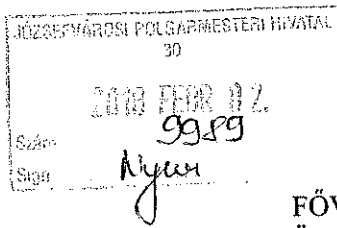 JÓZSEFVÁROSI POLGÁRMESTERI HIVATAL
30
2018 FEBR 02.
Szám 9989
Sign
FŐV